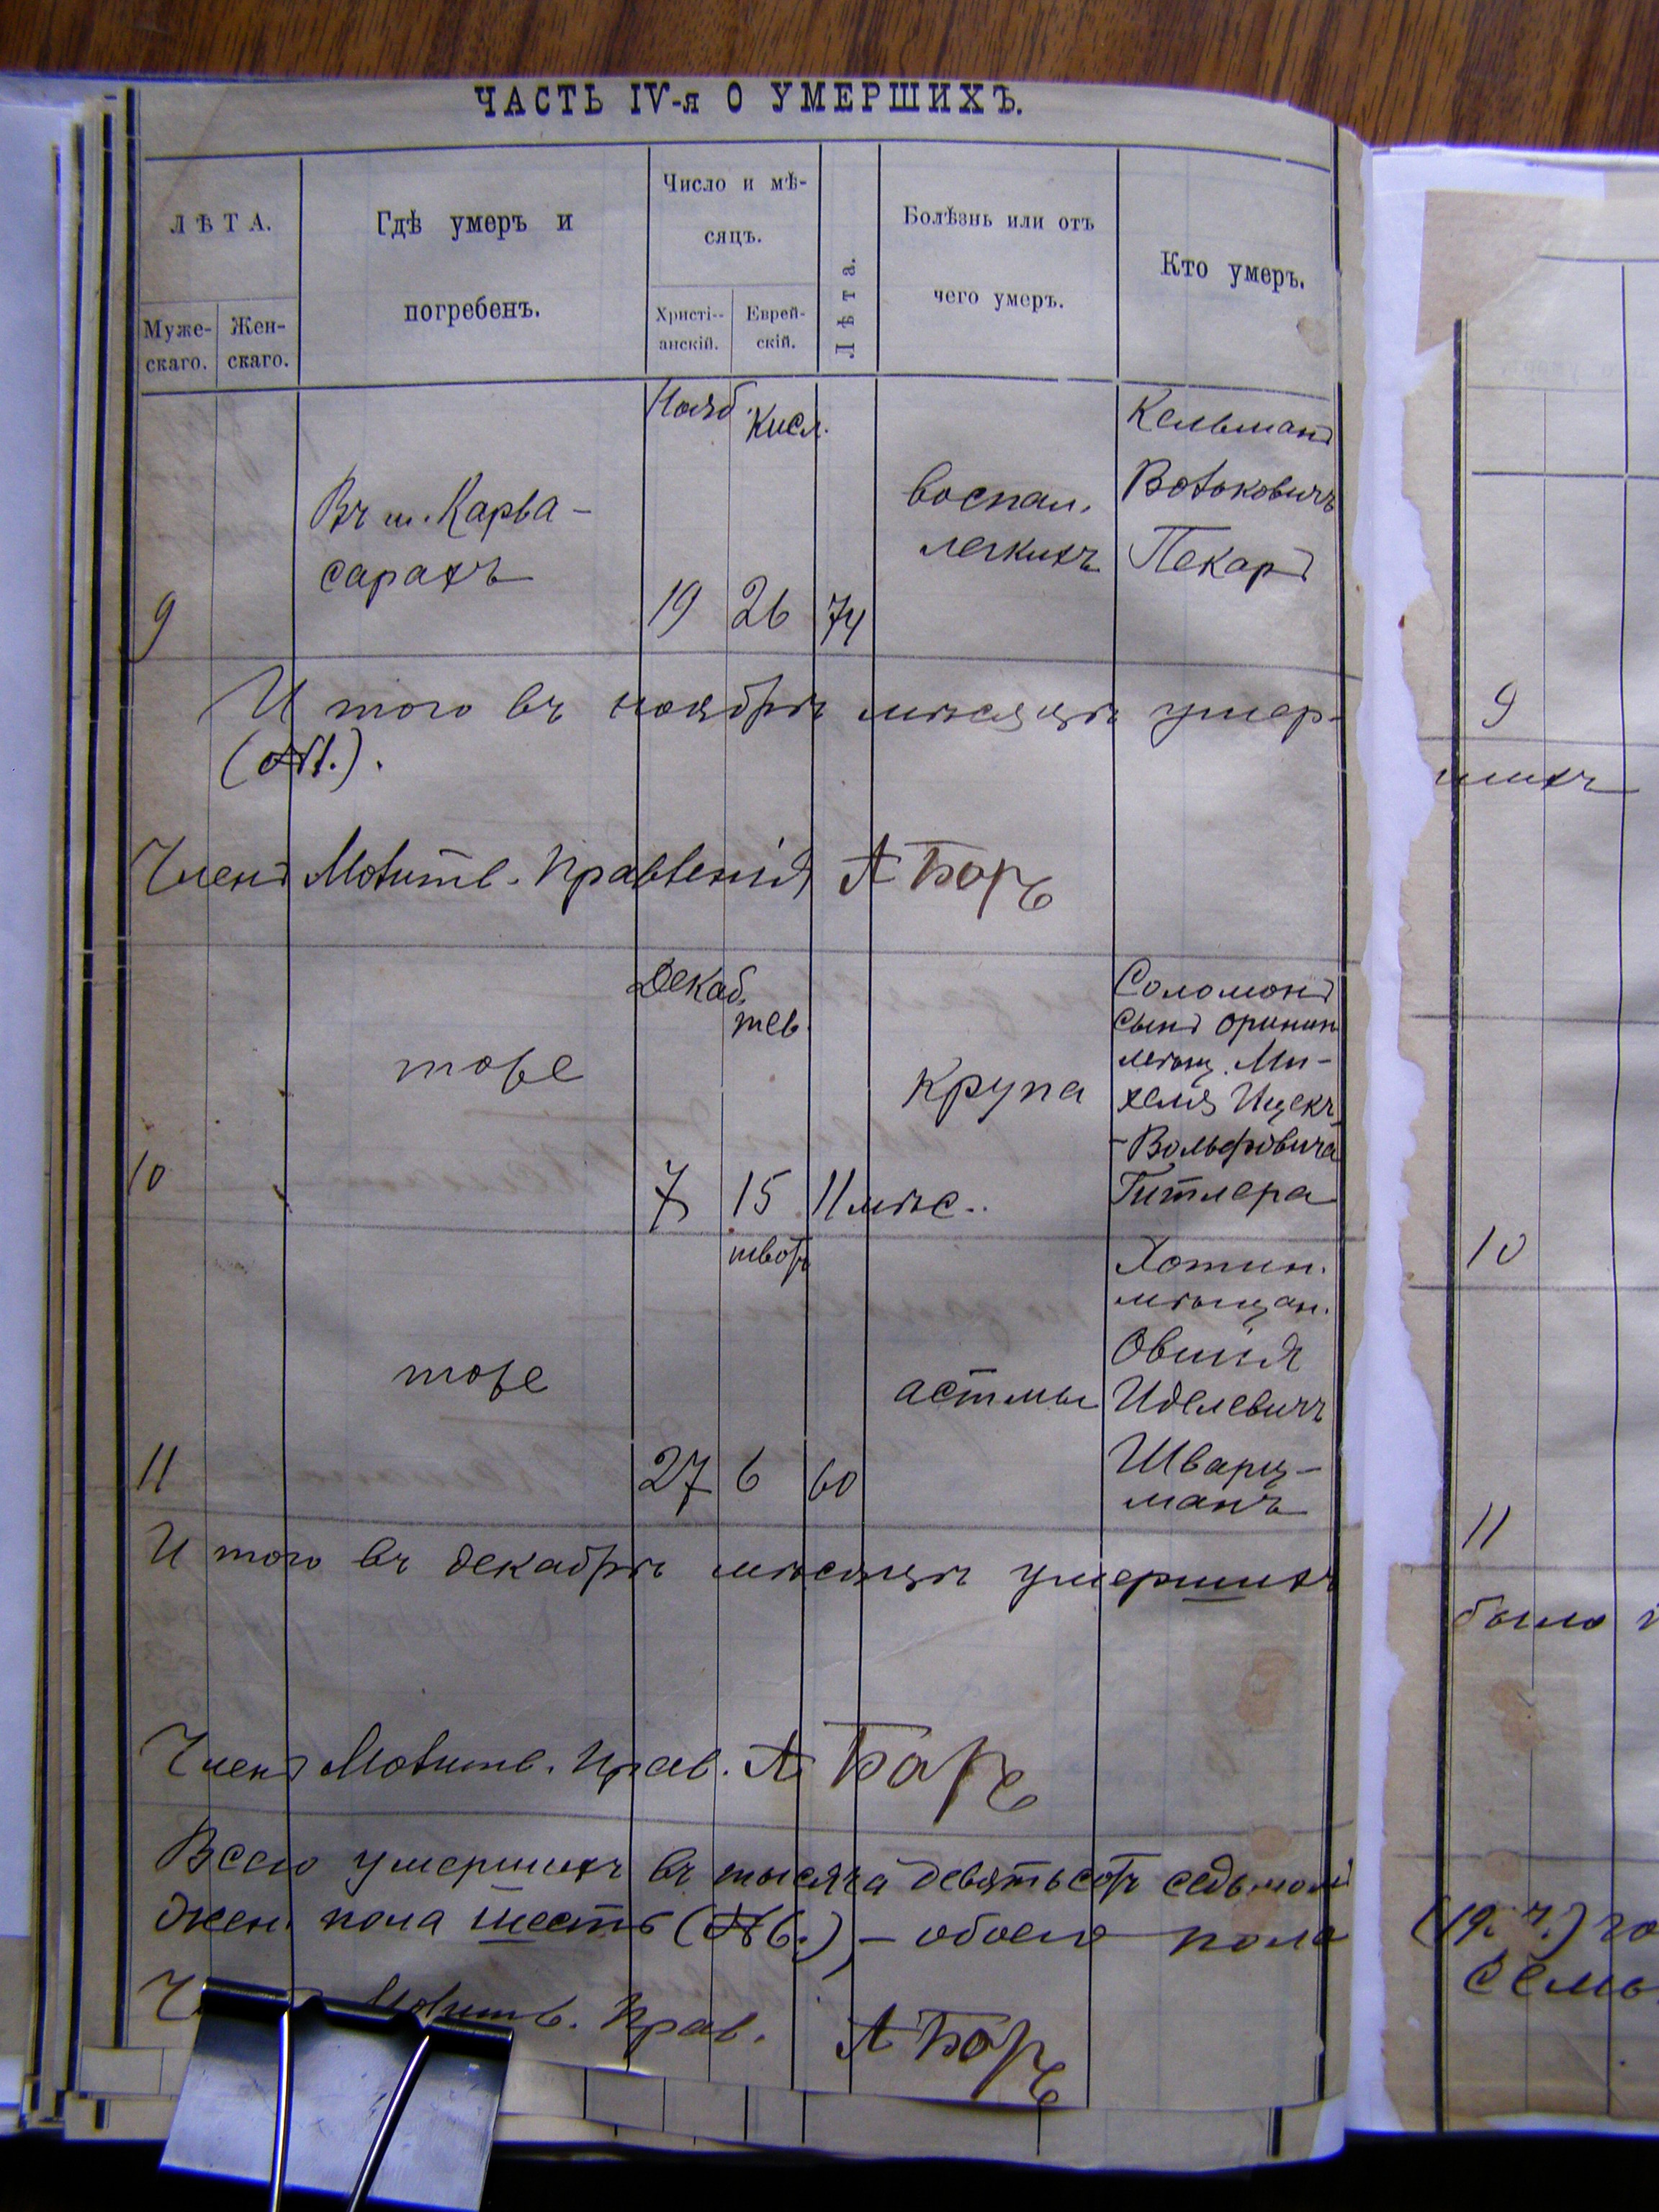 ЧАСТЬ IV-я О УМЕРШИХЪ.
ЛѢТА.
Муже-
скаго.
Жен-
скаго.
Гдѣ умеръ и
погребенъ.
Число и мѣ-
сяцъ.
Христі--
анскій.
Еврей-
скій.
Лѣта.
Болѣзнь или отъ
чего умеръ.
Кто умеръ.
9
Въ м. Карва-
сарахъ
Нояб.
19
Кисл.
26
74
воспал.
легкихъ
Кельманъ
Вольковичъ
Пекарь
Итого въ ноябрѣ мѣсяцѣ умер-
(№1.).
Членъ Молитв. Правленія А Боръ
10
тоже
Декаб.
7
тев.
15
11 мѣс..
крупа
Соломонъ
сынъ оринин
мѣщ. Ми-
хеля Ицекъ
-Вольфовича
Гитлера
11
тоже
27
шватъ
6
60
астмы
Хотин.
мѣщан.
Овшія
Иделевичъ
Шварц-
манъ
Итого въ декабрѣ мѣсяцѣ умершихъ
Членъ Молитв. Прав. А Боръ
Всего умершихъ въ тысяча девятьсотъ седьмомъ
жен. пола шесть (№6.),- обоего пола
Молитв. Прав. А Боръ
9
шихъ
10
11
было
(19. ч.) го
семь